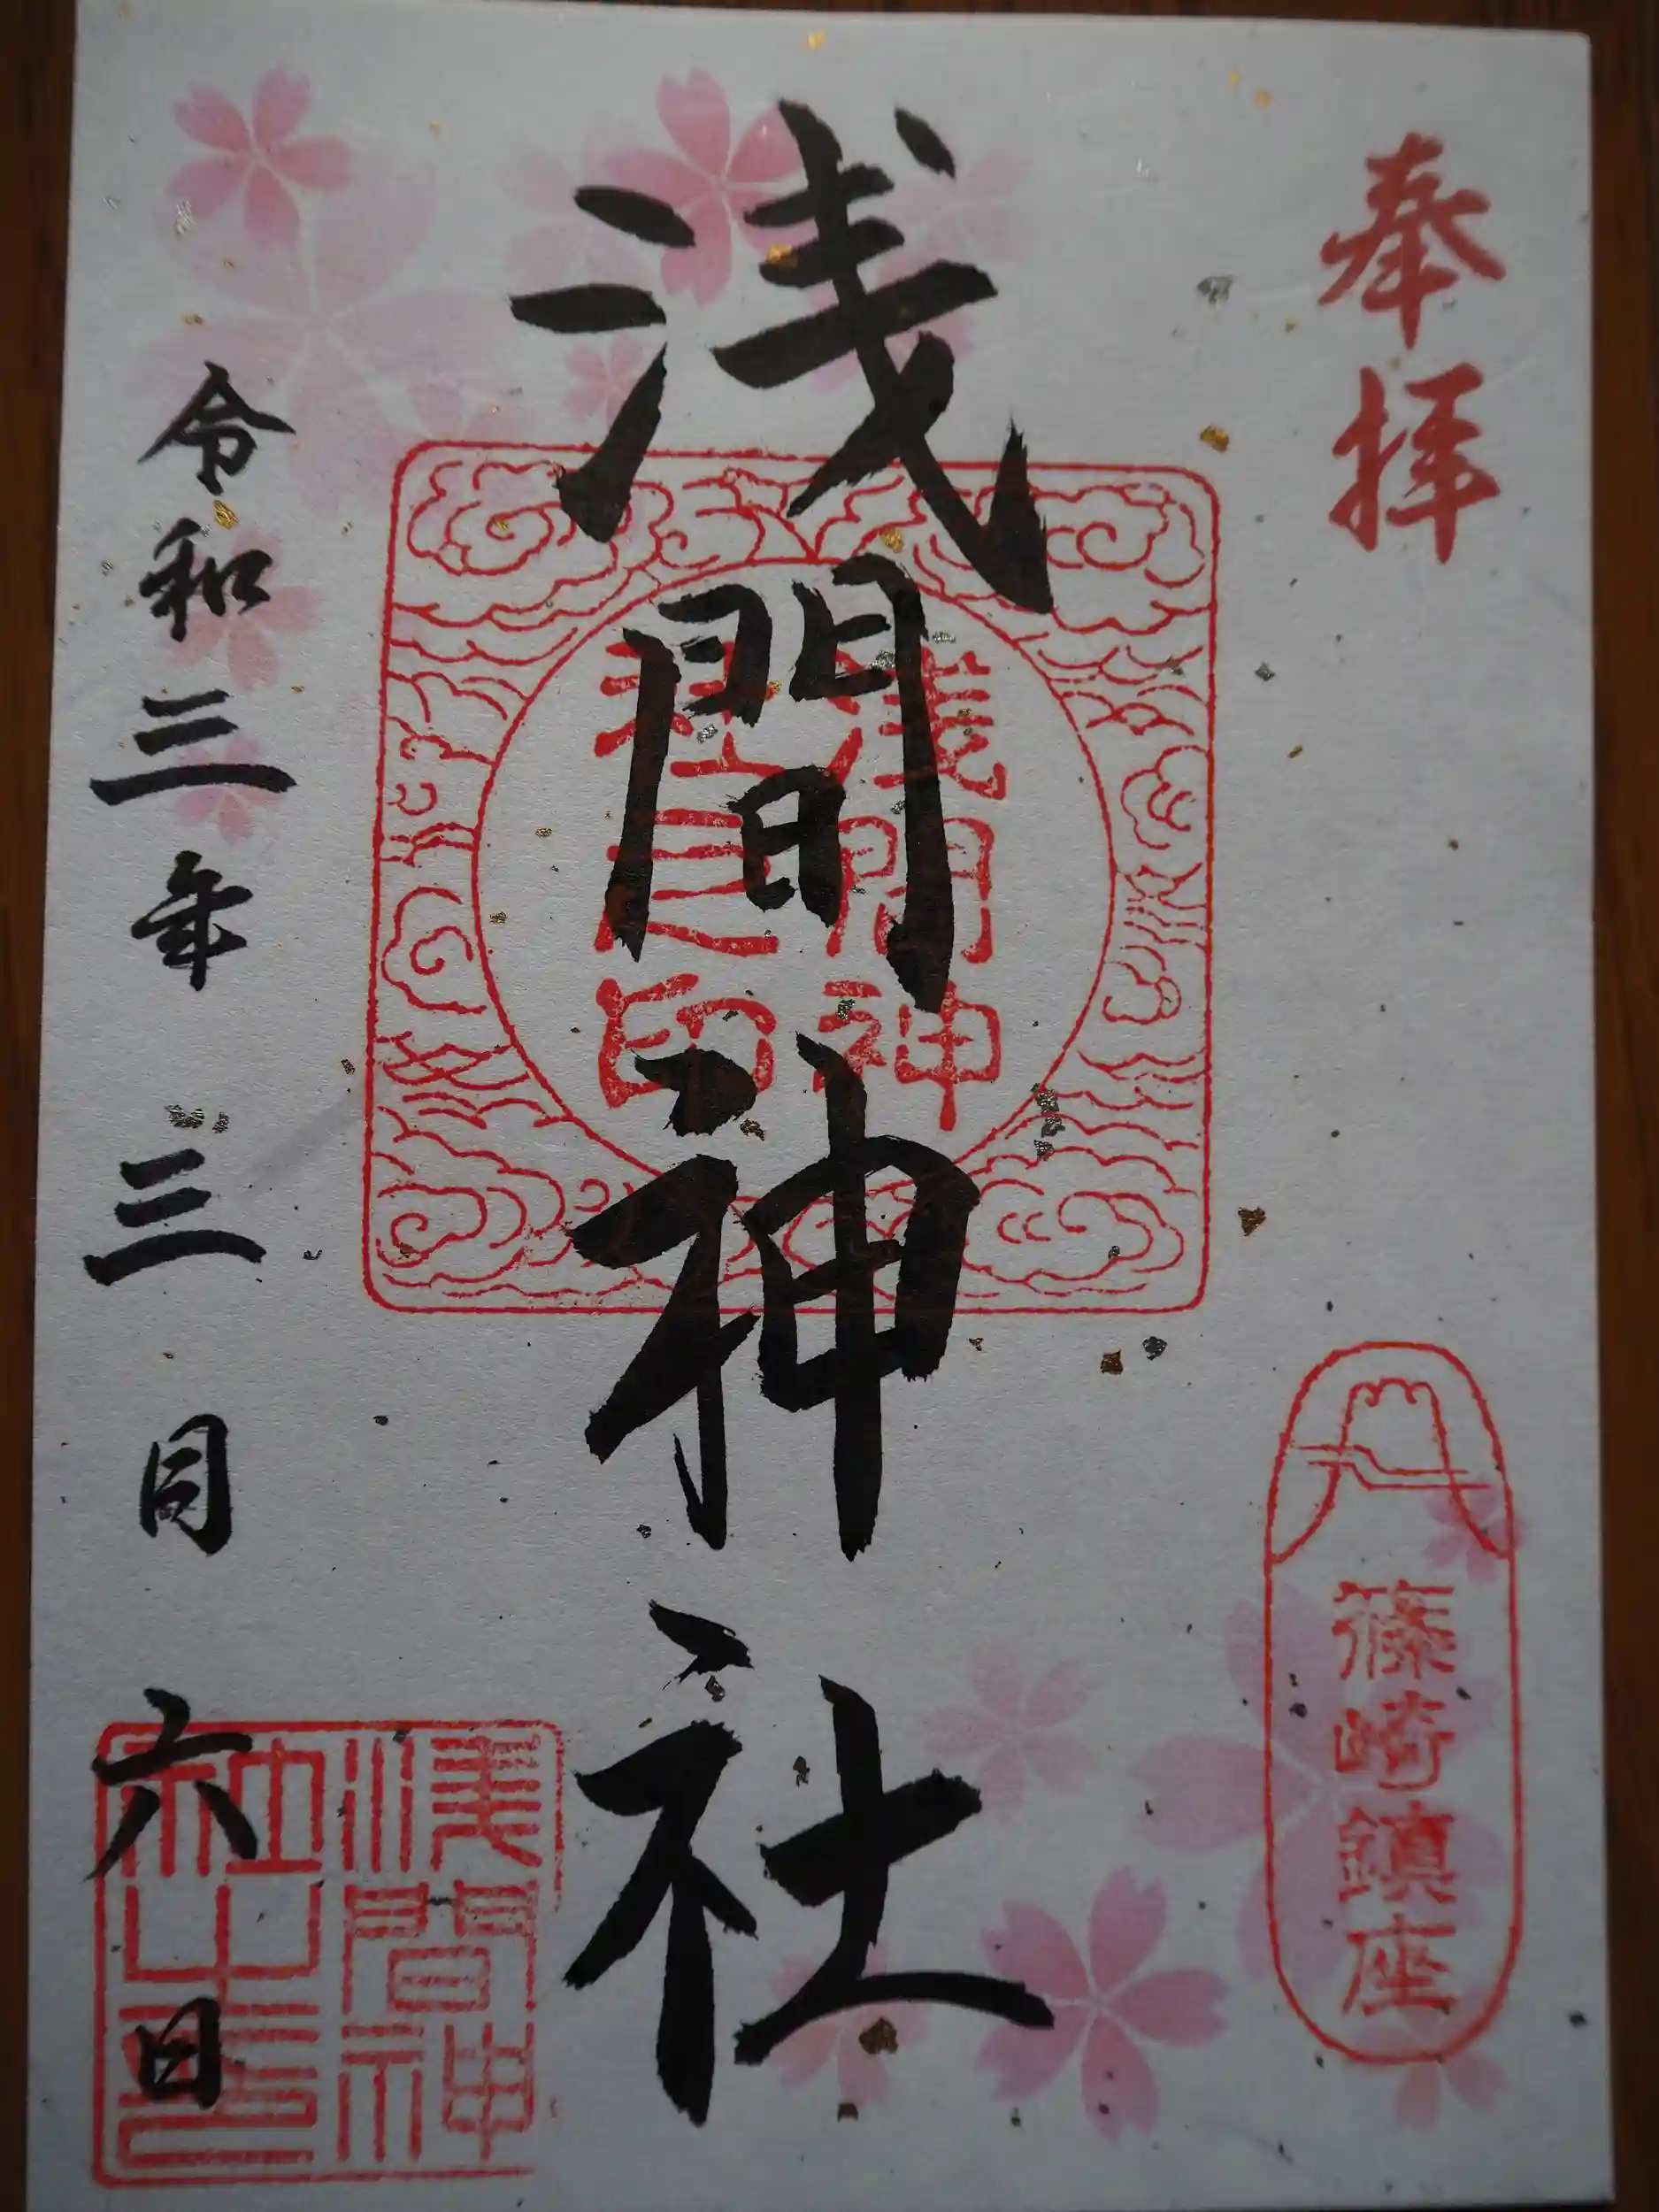 奉拝
篠崎鎮座
浅間神社
淺間神
社之印
令和三年三月六日
淺間神
社